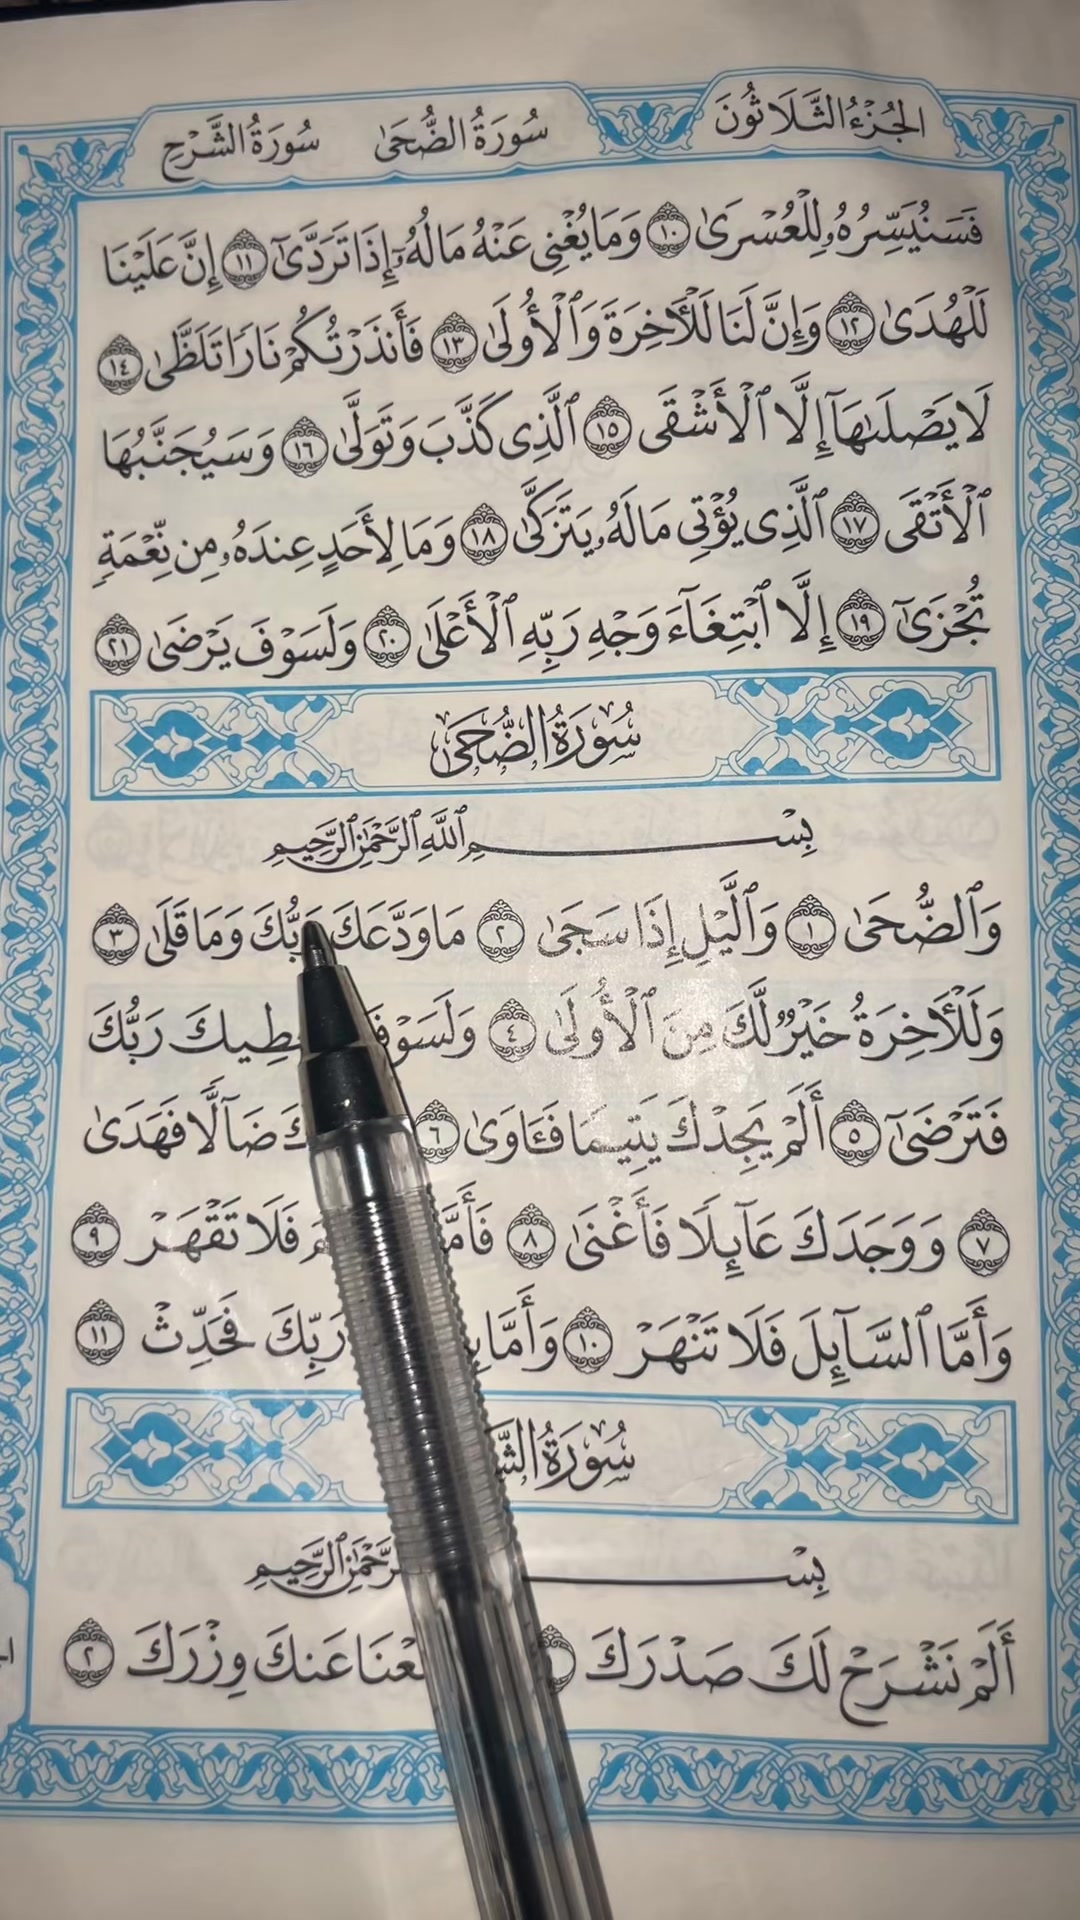 الجُزْءُ الثَّلَاثُونَ سُورَةُ الضُّحَىٰ سُورَةُ الشَّرْحِ
فَسَنُيَسِّرُهُۥ لِلْعُسْرَىٰ ١٠ وَمَا يُغْنِى عَنْهُ مَالُهُۥٓ إِذَا تَرَدَّىٰٓ ١١ إِنَّ عَلَيْنَا
لَلْهُدَىٰ ١٢ وَإِنَّ لَنَا لَلْأَخِرَةَ وَٱلْأُولَىٰ ١٣ فَأَنذَرْتُكُمْ نَارًا تَلَظَّىٰ ١٤
لَا يَصْلَىٰهَآ إِلَّا ٱلْأَشْقَى ١٥ ٱلَّذِى كَذَّبَ وَتَوَلَّىٰ ١٦ وَسَيُجَنَّبُهَا
ٱلْأَتْقَى ١٧ ٱلَّذِى يُؤْتِى مَالَهُۥ يَتَزَكَّىٰ ١٨ وَمَا لِأَحَدٍ عِندَهُۥ مِن نِّعْمَةٍ
تُجْزَىٰٓ ١٩ إِلَّا ٱبْتِغَآءَ وَجْهِ رَبِّهِ ٱلْأَعْلَىٰ ٢٠ وَلَسَوْفَ يَرْضَىٰ ٢١
سُورَةُ الضُّحَىٰ
بِسْمِ ٱللَّهِ ٱلرَّحْمَٰنِ ٱلرَّحِيمِ
وَٱلضُّحَىٰ ١ وَٱلَّيْلِ إِذَا سَجَىٰ ٢ مَا وَدَّعَكَ رَبُّكَ وَمَا قَلَىٰ ٣
وَلَلْأَخِرَةُ خَيْرٌ لَّكَ مِنَ ٱلْأُولَىٰ ٤ وَلَسَوْفَ رَبُّكَ
فَتَرْضَىٰٓ ٥ أَلَمْ يَجِدْكَ يَتِيمًا فَـَٔاوَىٰ ٦ ضَآلًّا فَهَدَىٰ
٧ وَوَجَدَكَ عَآئِلًا فَأَغْنَىٰ ٨ فَأَمَّا فَلَا تَقْهَرْ ٩
وَأَمَّا ٱلسَّآئِلَ فَلَا تَنْهَرْ ١٠ وَأَمَّا رَبِّكَ فَحَدِّثْ ١١
سُورَةُ
بِسْمِ ٱلرَّحْمَٰنِ ٱلرَّحِيمِ
أَلَمْ نَشْرَحْ لَكَ صَدْرَكَ عَنكَ وِزْرَكَ ٢